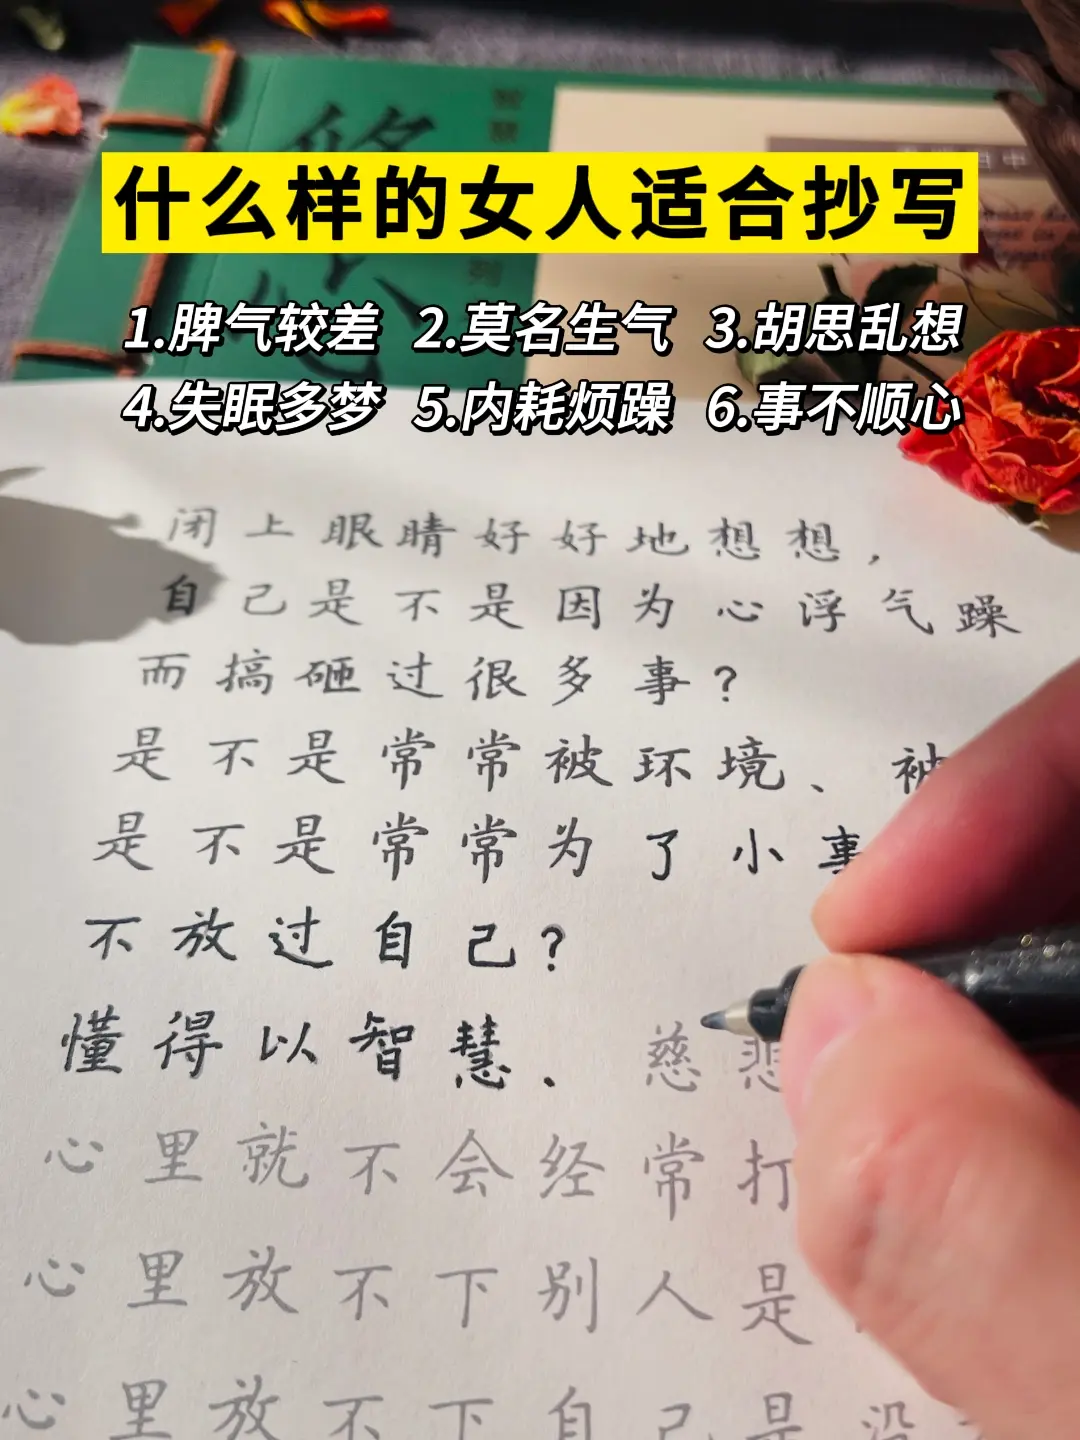 什么样的女人适合抄写
1.脾气较差 2.莫名生气 3.胡思乱想
4.失眠多梦 5.内耗烦躁 6.事不顺心
闭上眼睛好好地想想，
自己是不是因为心浮气躁
而搞砸过很多事？
是不是常常被环境、被
是不是常常为了小事
不放过自己？
懂得以智慧、慈悲
心里就不会经常打
心里放不下别人是
心里放不下自己是没